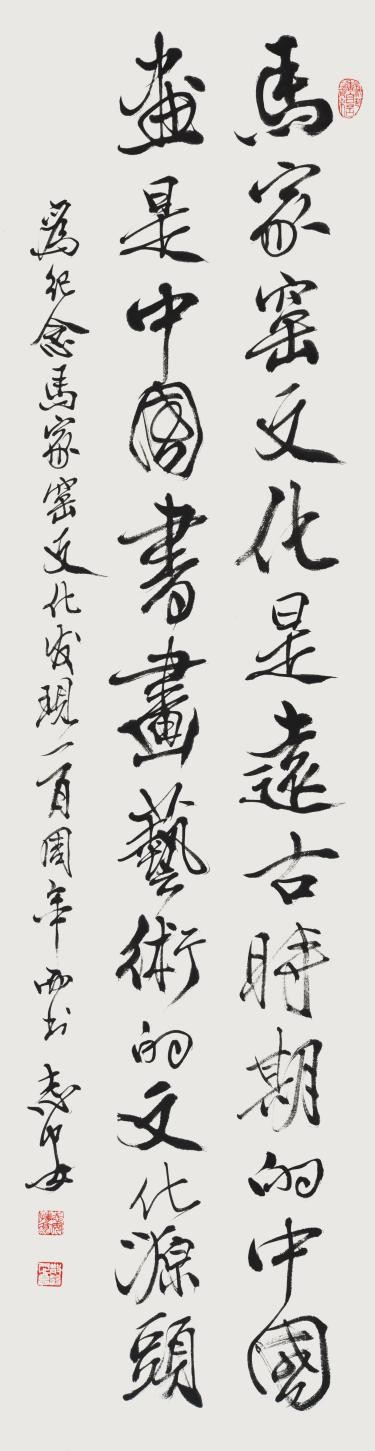 馬家窑文化是遠古時期的中國
畫是中國書畫藝術的文化源頭
為紀念馬家窑文化发現一百周年而书